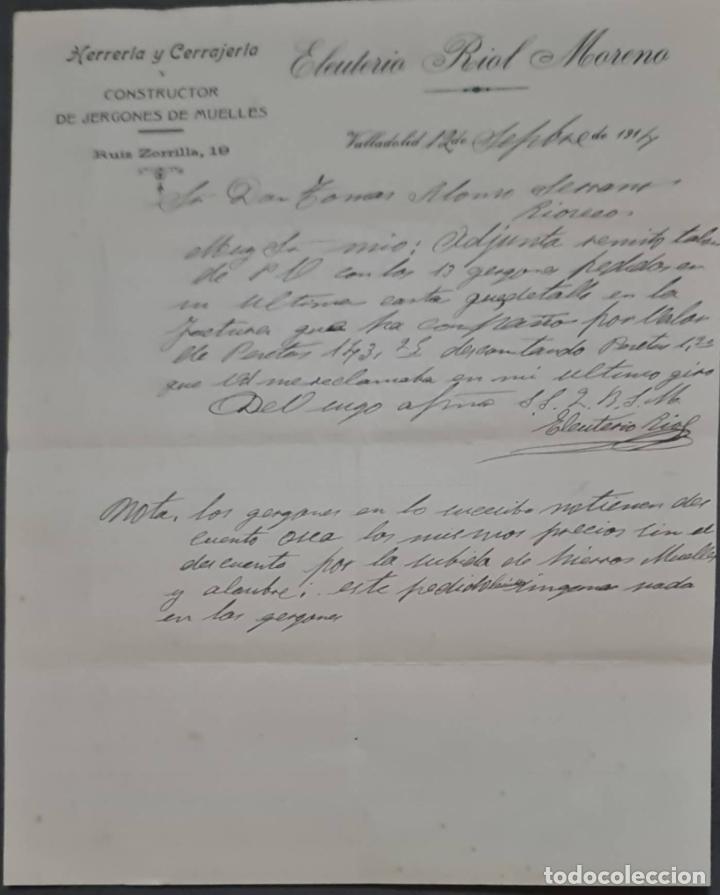 Herrería y Cerrajería
Y
CONSTRUCTOR
DE JERGONES DE MUELLES
Ruiz Zorrilla, 19
Eleuterio Riol Moreno
Valladolid 12 de Sepbre de 1914
Sr Don Tomas Alonso Serrano
Rioseco
Muy Sr mio; Adjunta remito talon
de con los 13 gergones pedidos en
su ultima carta que detallo en la
factura que ha por valor
de Pesetas 143,25 descontando Pesetas 1,25
que Vd me reclamaba en mi ultimo giro
Del suyo afmo S.S.Q.B.S.M.
Eleuterio Riol
Nota, los gergones en lo sucesibo no tienen des
cuento osea los mismos precios sin el
descuento por la subida de hierros Muelles
y alambre; este pedido nada
en los gergones
todocoleccion